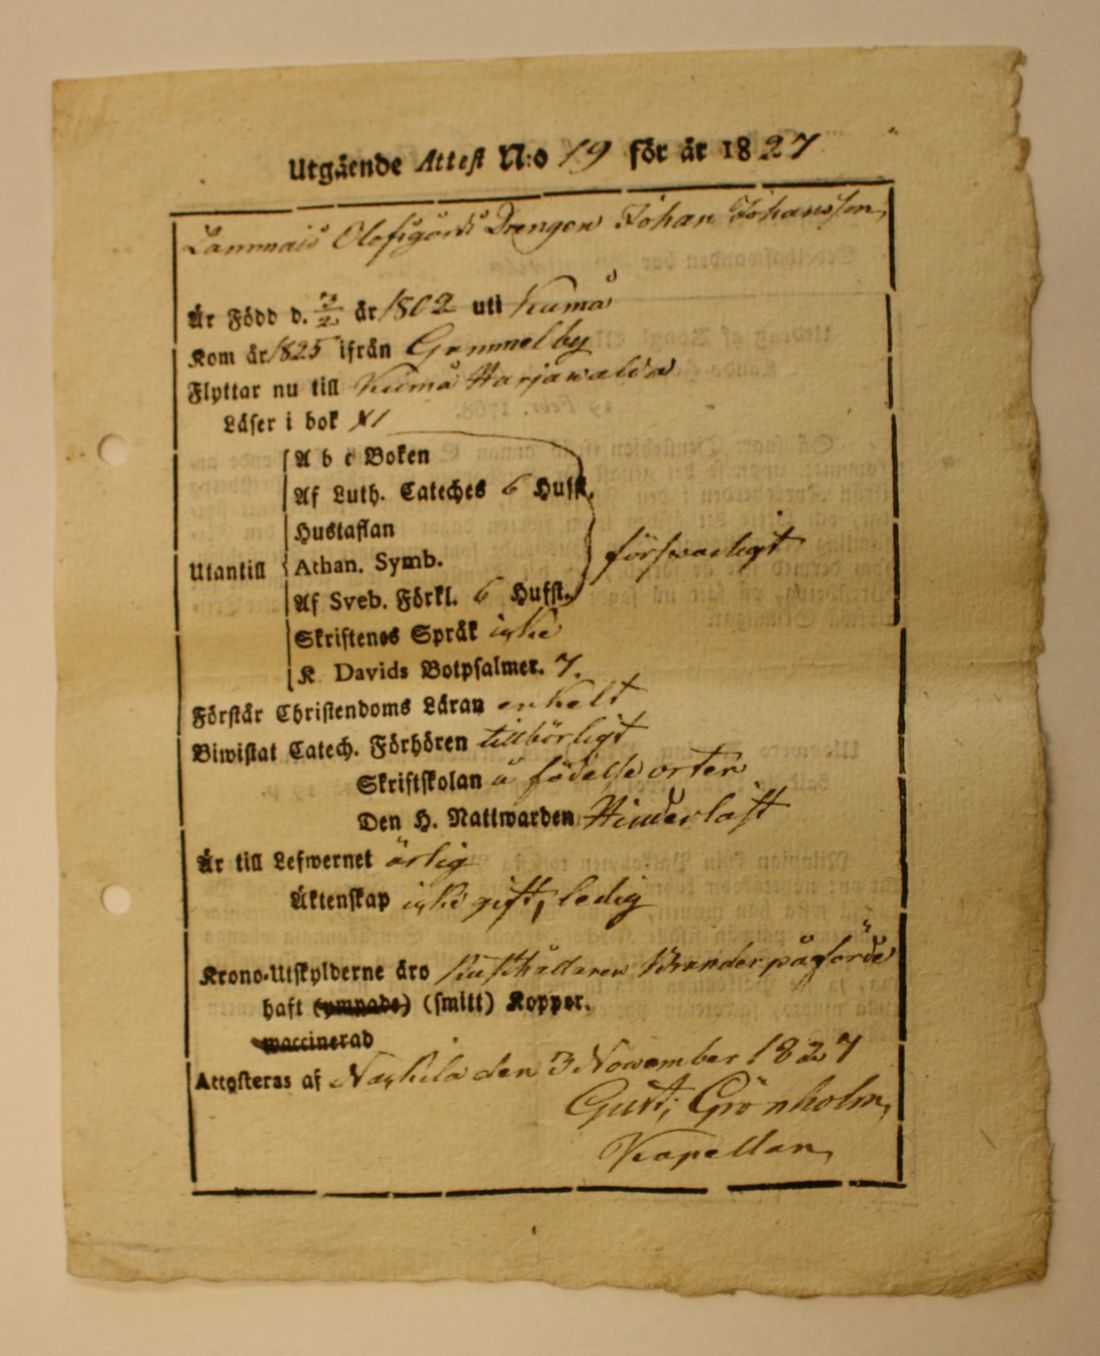 Utgående Attest N:o 19 för år 1827
Lammais Olofsgårds Drengen Johan Johansson,
Är Född d. 3/2 år 1802 uti Kumå
Kom år 1825 ifrån Gammelby
Flyttar nu till Kumå Harjawalda
Läser i bok XI
A b c Boken
Af Luth. Cateches 6 Hufst.
Hustaflan
Utantill Athan. Symb. försvarligt
Af Sveb. Förkl. 6 Hufst.
Skriftenes Språk icke
K Davids Botpsalmer. 7.
Förstår Christendoms Läran enkelt
Biwistat Catech. Förhören tillbörligt
Skriftskolan å födelse orten
Den H. Nattwarden Hinderlöst
Är till Lefwernet ärlig
Äktenskap icke gift, ledig
Krono-Utskylderne äro Rusthållaren Brander påförde
haft (ympade) (smitt) Koppor.
waccinerad
Attesteras af Nackila den 3 November 1827
Gust; Grönholm,
Kapellan,